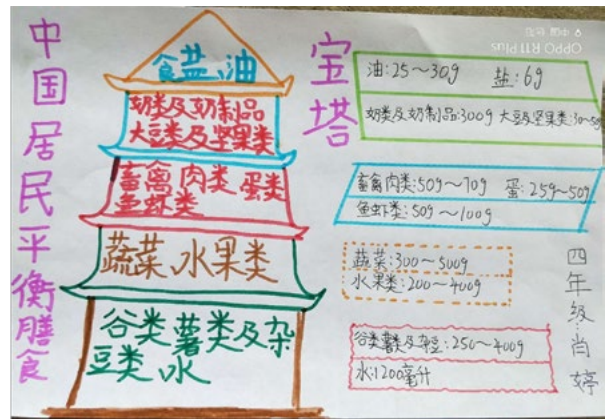 中国居民平衡膳食
宝塔
食盐、油
奶类及奶制品
大豆类及坚果类
畜禽肉类 蛋类
鱼虾类
蔬菜、水果类
谷类薯类及杂
豆类、水
油:25~30g 盐:6g
奶类及奶制品:300g 大豆及坚果类:30~50g
畜禽肉类:50g~70g 蛋:25g~50g
鱼虾类:50g~100g
蔬菜:300~500g
水果类:200~400g
谷类薯类及杂豆:250~400g
水:1200毫升
四年级:肖婷
OPPO R11 Plus